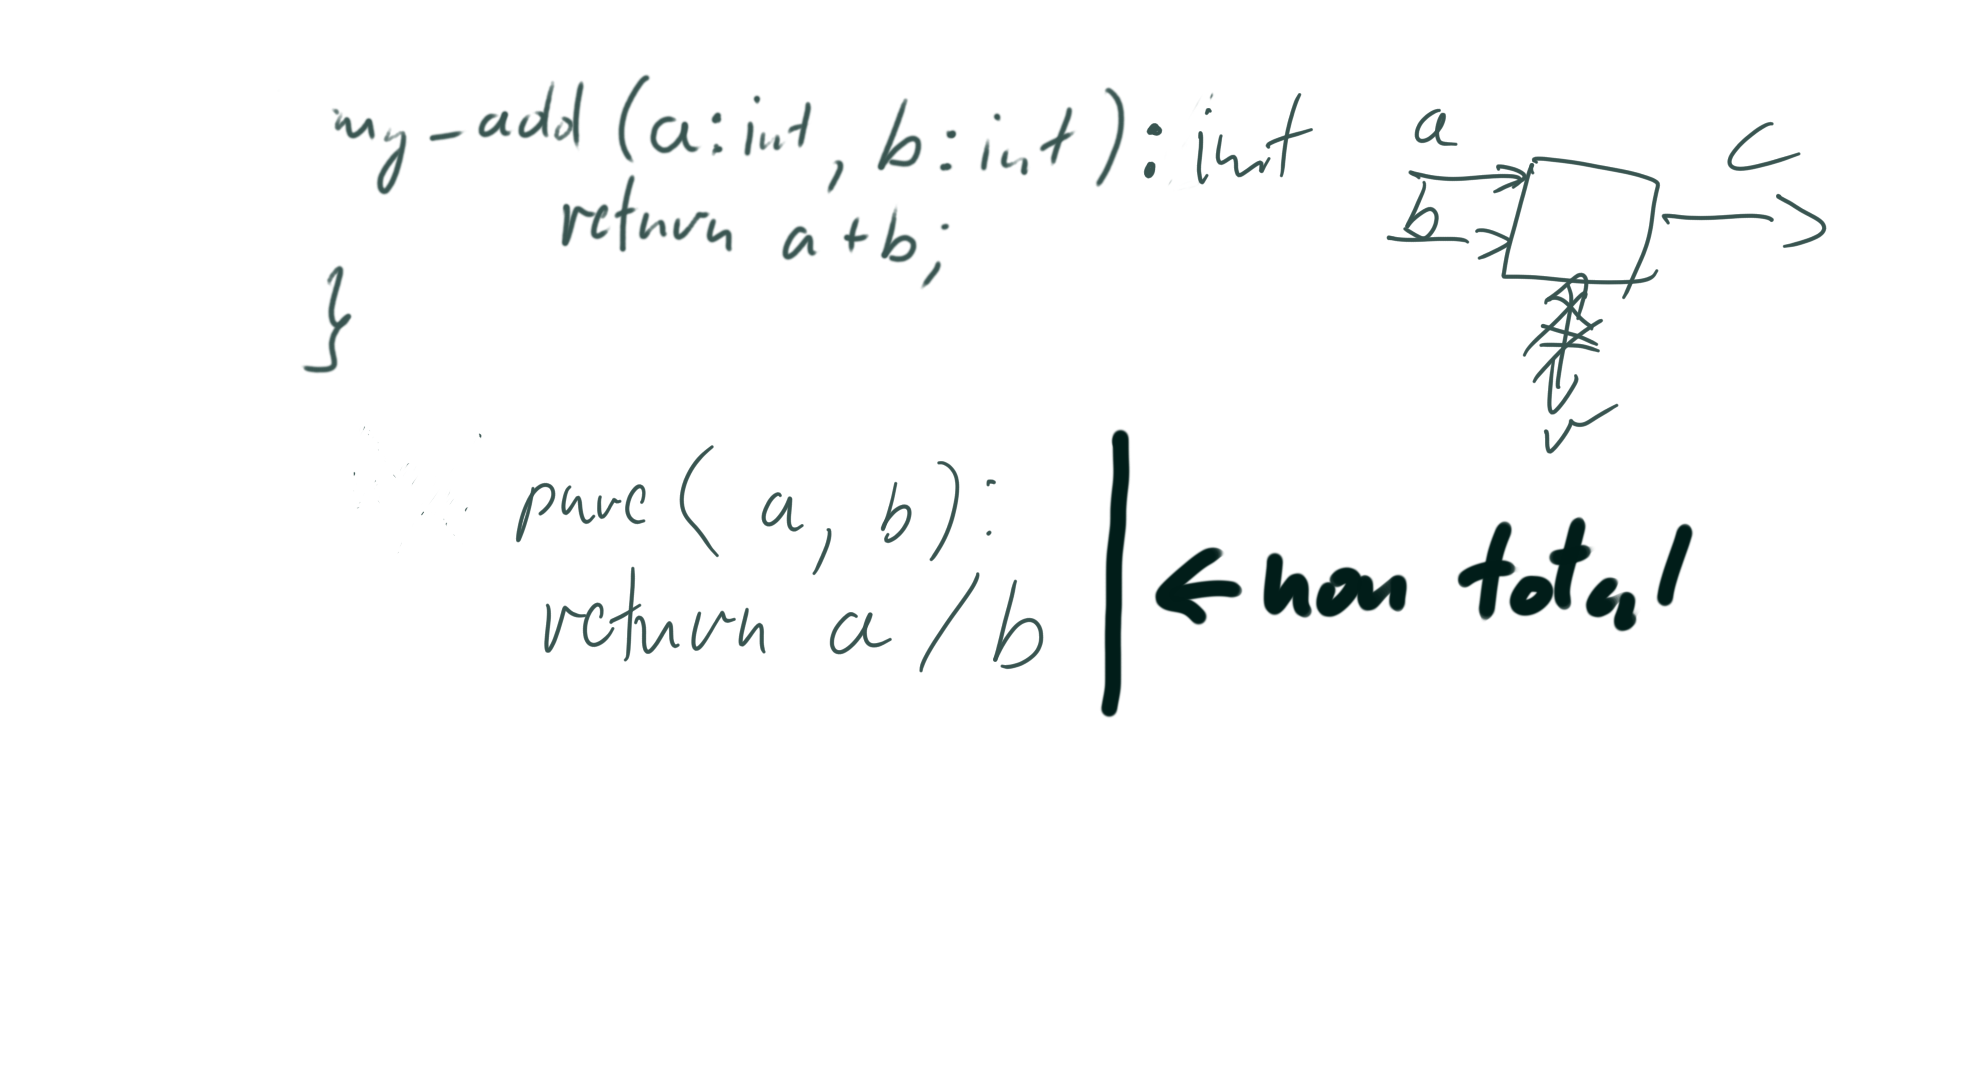 my-add (a: int, b: int): int
return a+b;
}
a
b
c
pure(a, b):
return a/b
← non total